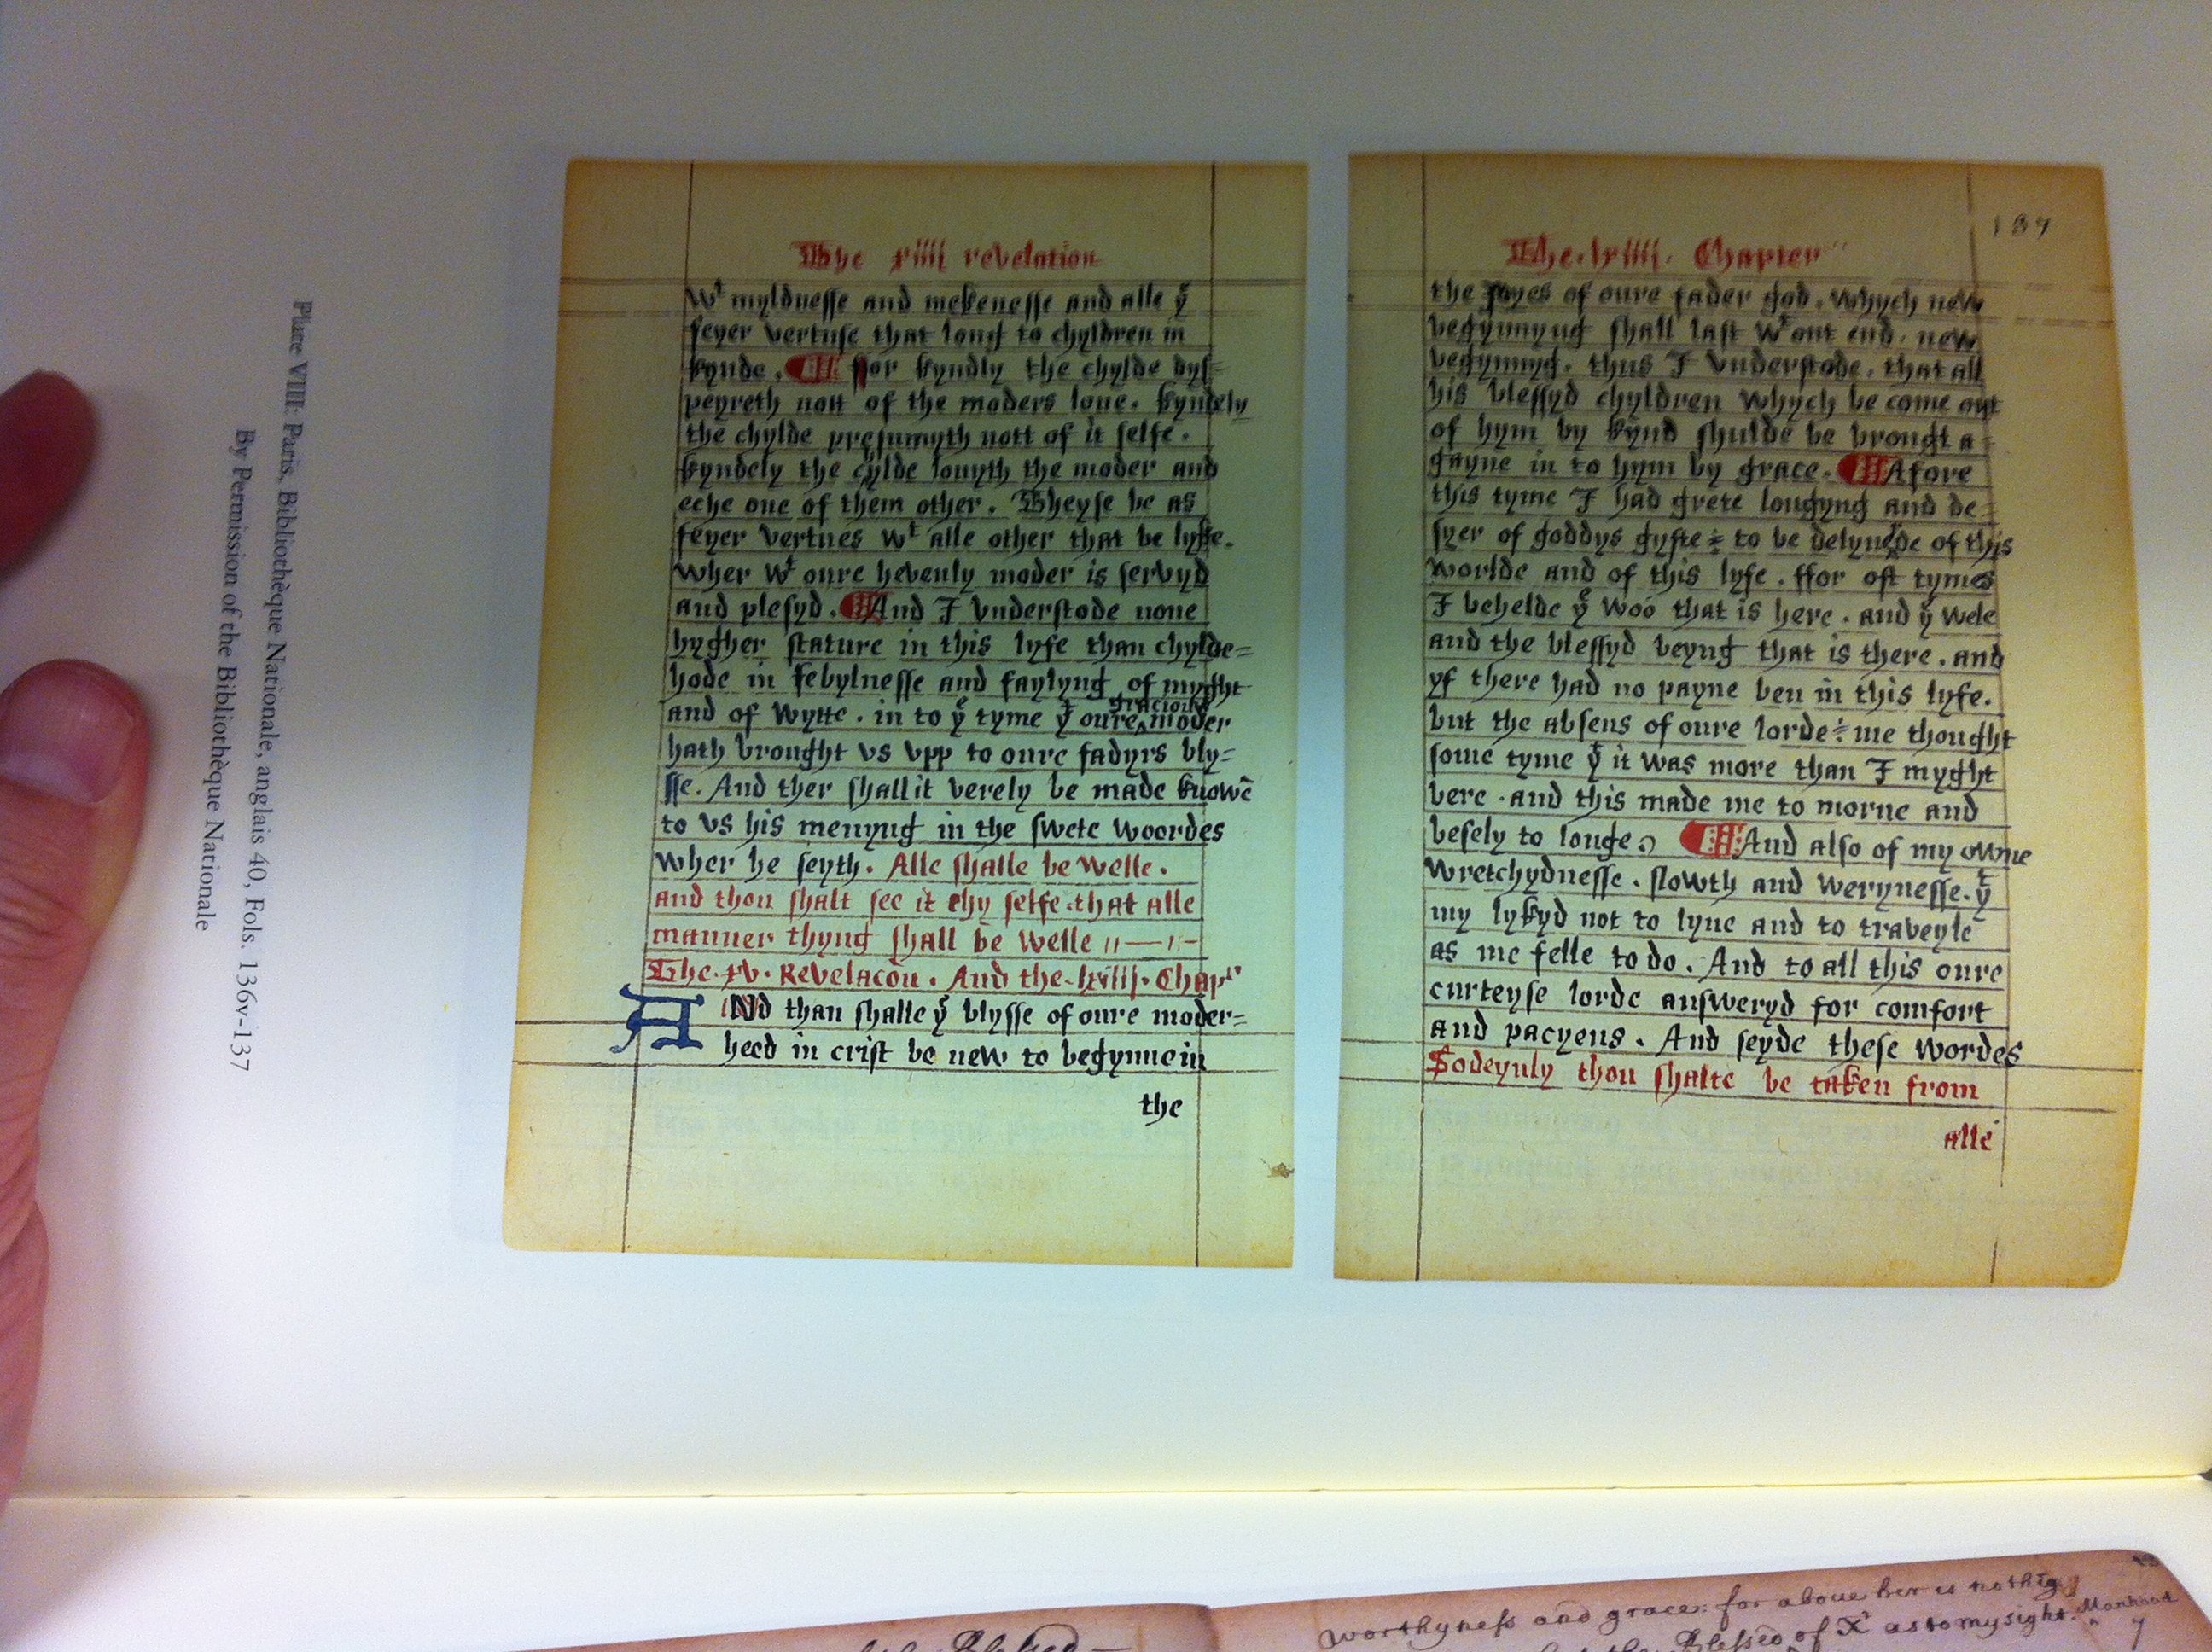 Plate VIII: Paris, Bibliothèque Nationale, anglais 40, Fols. 136v-137
By Permission of the Bibliothèque Nationale
The xiiij revelation
wᵗ myldnesse and mekenesse and alle yᵉ
feyer vertuse that long to chyldren in
kynde. ¶ ffor kyndly the chylde dys=
peyreth nott of the moders loue. kyndely
the chylde presumyth nott of it selfe.
kyndely the cylde louyth the moder and
eche one of them other. Theyse be as
feyer vertues wᵗ alle other that be lyke.
wher wᵗ oure hevenly moder is servyd
and plesyd. ¶ And I vnderstode none
hygher stature in this lyfe than chylde=
hode in febylnesse and faylyng of myght
and of wytte. in to yᵉ tyme yᵗ oure ‸gracious moder
hath brought vs vpp to oure fadyrs bly=
sse. And ther shall it verely be made knowē
to vs his menyng in the swete woordes
wher he seyth. Alle shalle be welle.
and thou shalt see it thy selfe. that alle
manner thyng shall be welle
The .xv. Revelacōn. And the .lxiiij. Chapᵗʳ
ANd than shalle yᵉ blysse of oure moder=
heed in crist be new to begynne in
the
137
The .lxiiij. Chapter
the joyes of oure fader god. whych new
begynnyng shall last wᵗ out end. new
begynnyng. thus I vnderstode. that all
his blessyd chyldren whych be come out
of hym by kynd shulde be brougt a=
gayne in to hym by grace. ¶ Afore
this tyme I had grete longyng and de=
syer of goddys gyfte to be delyuerde of this
worlde and of this lyfe. ffor oft tymes
I behelde yᵉ woo that is here. and yᵉ wele
and the blessyd beyng that is there. and
yf there had no payne ben in this lyfe.
but the absens of oure lorde me thought
some tyme yᵗ it was more than I myght
bere. and this made me to morne and
besely to longe. ¶ And also of my owne
wretchydnesse. slowth and werynesse. yᵗ
my lykyd not to lyue and to traveyle
as me felle to do. And to all this oure
curteyse lorde answeryd for comfort
and pacyens. And seyde these wordes
Sodeynly thou shalte be taken from
alle
Blessed
worthyness and grace: for aboue her is nothīg
Blessed ‸Manhood of Xᵗ as to my sight.